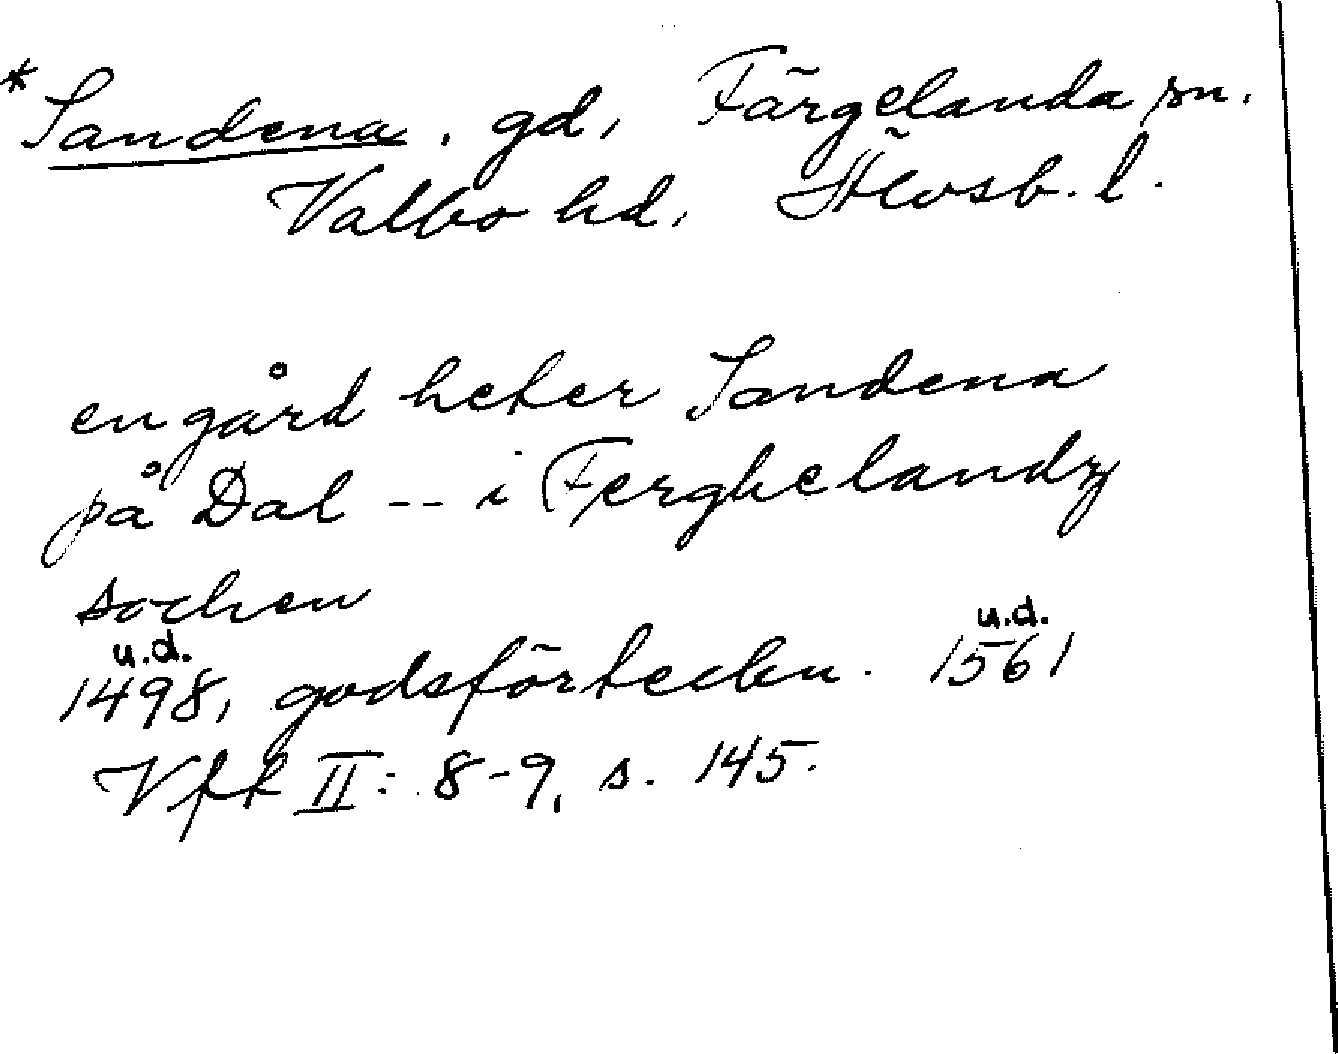 * Sandena, gd, Färgelanda sn.
Valbo hd, Älvsb. l.
en gård heter Sandena
på Dal -- i Ferghelandz
sochen
u.d. u.d.
1498, godsförteckn. 1561
Vfk II: 8-9, s. 145.